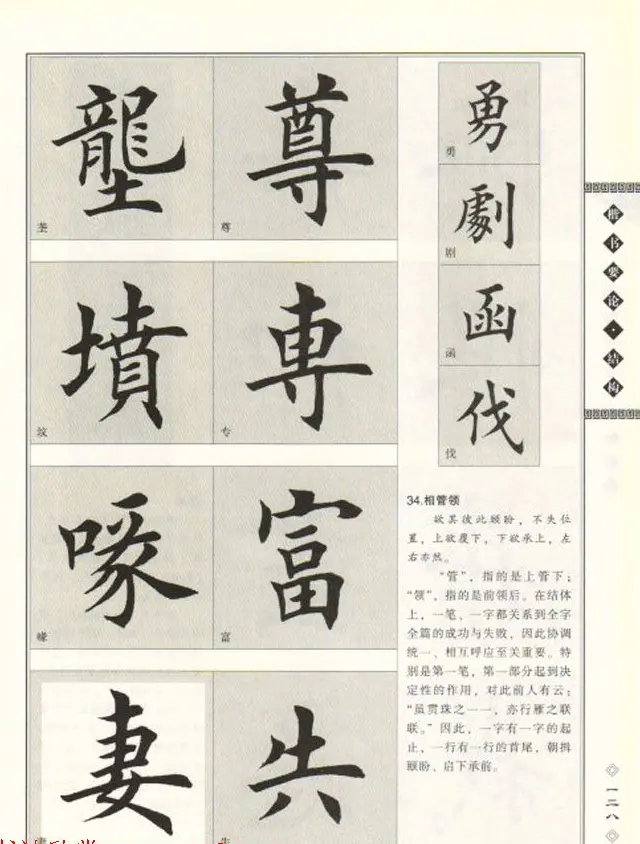 壟
垄
尊
尊
墳
坟
專
专
喙
喙
富
富
妻
勇
勇
劇
剧
函
函
伐
伐
34.相管领
欲其彼此顾盼，不失位
置，上欲覆下，下欲承上，左
右亦然。
“管”，指的是上管下；
“领”，指的是前领后。在结体
上，一笔、一字都关系到全字
全篇的成功与失败，因此协调
统一、相互呼应至关重要。特
别是第一笔，第一部分起到决
定性的作用，对此前人有云：
“虽贯珠之一一，亦行雁之联
联。”因此，一字有一字的起
止，一行有一行的首尾，朝揖
顾盼、启下承前。
楷书要论·结构
一二八